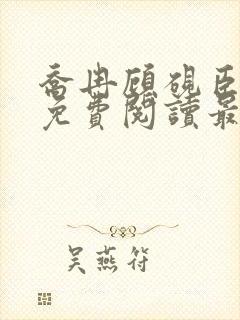 喬冉顧硯臣
免費閱讀最
吳燕符